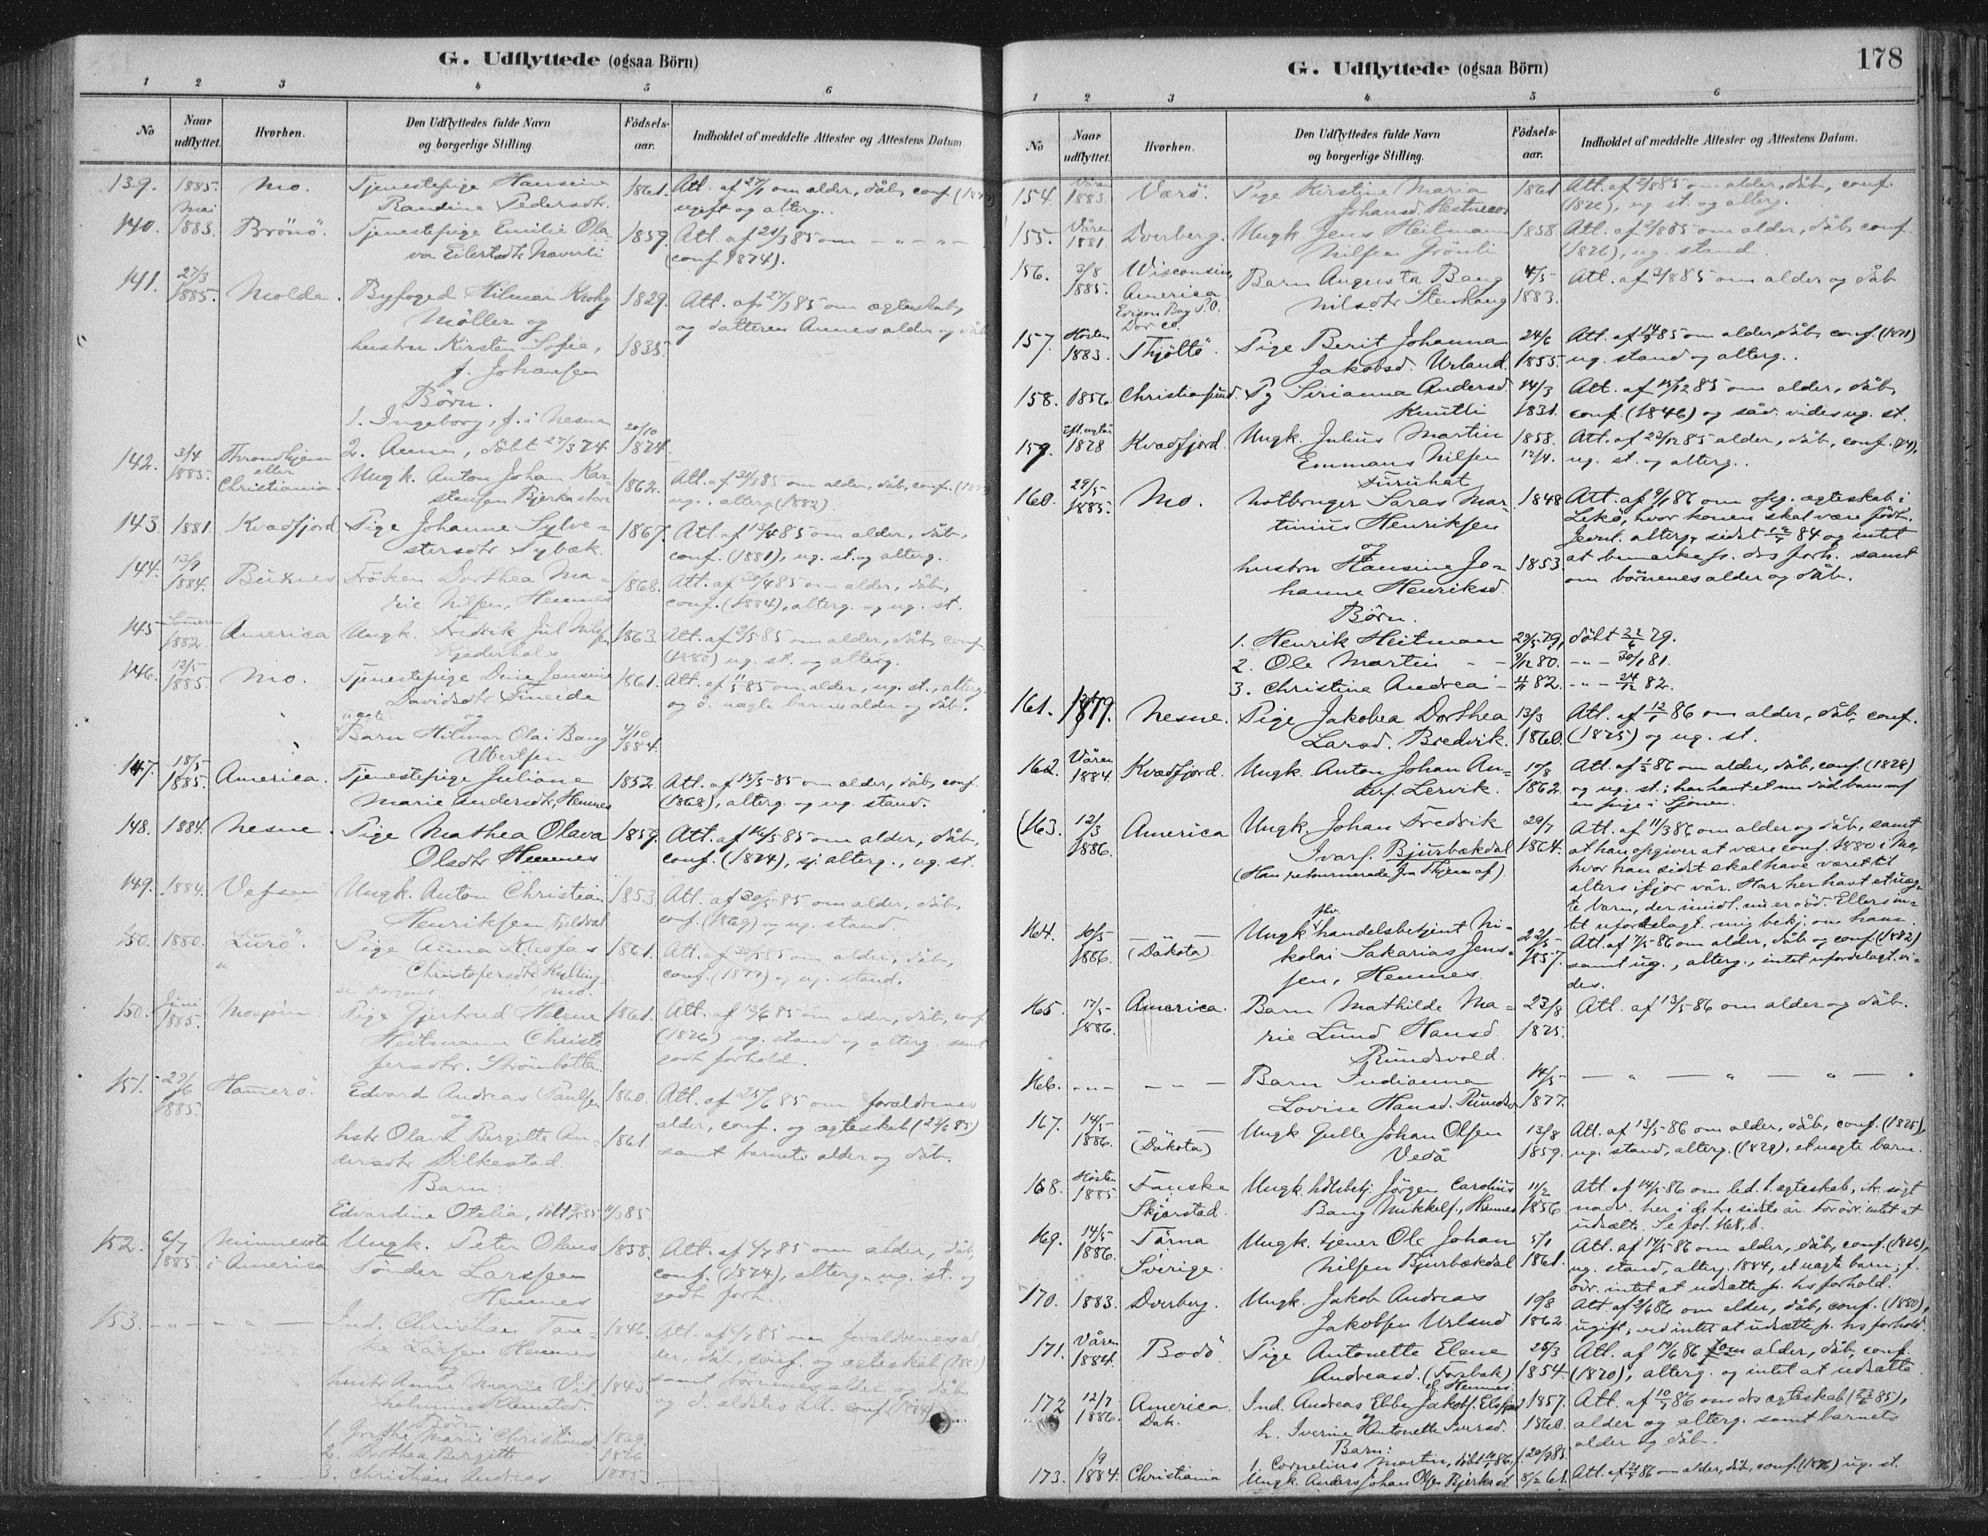 G. Udflyttede (ogsaa Börn)
1 2 3 4 5 6
No
Naar udflyttet.
Hvorhen.
Den Udflyttedes fulde Navn og borgerlige Stilling.
Födsels-aar.
Indholdet af meddelte Attester og Attestens Datum.
139. 1885. Mo. Tjenestepige Hansine 1861. Att. af 27/1 om alder, dåb, conf.
Randine Pedersdtr. ugift og alterg.
140. Mai 1883. Brönö. Tjenestepige Emilie Ola- 1859. Att. af 21/3 85 om — „ — „ —
va Eilertsdtr (conf. 1874).
141. 27/3 1885. Molde. Byfoged Hilmar Krohg 1829. Att. af 27/3 85 om ægteskab,
Möller og og datteren Annes alder og dåb
hustru Kirsten Sofie, 1835.
f. Johansen
Börn.
1. Ingeborg, f. i Nesne
2. Anna, döbt 27/3 74 20/10 1874.
142. 2/4 1885. Throndhjem eller Christiania. Ungk. Anton Johan Kar- 1862. Att. af 24/3 85 om alder, dåb, conf.
stensen ug., alterg. (1882).
143. 1881. Kvadfjord. Pige Johanne Sylve- 1867. Att. af 13/4 85 om alder, dåb,
stersdtr Sybæk. conf. (1881), ug. st. og alterg.
144. 13/9 1884. Buxnes Fröken Dorthea Ma- 1868. Att. af 20/4 85 om alder, dåb,
rie Nilsen, Hemnes conf. (1884), alterg. og ug. st.
145. 1882. America Ungk. Fredrik Jul Nilsen 1863. Att. af 9/5 85 om alder, dåb, conf.
(1880) ug. st. og alterg.
146. 12/5 1885. Mo. Tjenestepige Dine Jensine 1861. Att. af 11/5 85 om alder, ug. st., alterg.
Davidsdtr Fineide og d. uægte barns alder og dåb.
og
uægte Barn Hilmar Olai Bang 4/10 1884.
Albertsen
147. 18/5 1885. America. Tjenestepige Juliane 1852. Att. af 15/5 85 om alder, dåb, conf.
Marie Andersdtr, Hemnes (1868), alterg. og ug. stand.
148. 1884. Nesne. Pige Mathea Olava 1859. Att. af 16/5 85 om alder, dåb,
Olsdtr Hemnes conf. (1874), ej alterg., ug. st.
149. 1884. Vefsen Ungk. Anton Christian 1853. Att. af 20/5 85 om alder, dåb,
Henriksen conf. (1869) og ug. stand.
150. 1880. Lurö. Pige Anna Kleofas 1861. Att. af 20/5 85 om alder, dåb,
Christofersdtr conf. (1877) og ug. stand.
150. Juni 1885. Mosjöen. Pige Gjertrud Helene 1861. Att. af 13/6 85 om alder, dåb, conf.
Heitmann Christo- (1876) ug. stand og alterg. samt
fersdtr. Strömbotten. godt forhold.
151. 29/6 1885. Hamerö. Edvard Andreas Paulsen 1860. Att. af 25/6 85 om forældrenes
og alder, conf. og ægteskab
hstr Olava Bergitte An- 1861. samt barnets alder og dåb.
dersdtr Dilkestad.
Barn:
Edvardine Otelia, 4/3 85
152. 6/7 1885. Minnesota i America Ungk. Peter Olaus 1858. Att. af 4/7 85 om alder, dåb,
Tönder Larssen conf. (1874), alterg., ug. st. og
Hemnes godt forh.
153. — „ — — „ — Ind. Christian Tan- 1846. Att. af 4/7 85 om forældrenes al-
ke Larsen Hemnes der, dåb, conf. og ægteskab
og samt börnenes alder og dåb
hustr Anne Marie Vil- 1843. og d. ældstes
helmine Klemetsd.
Börn.
1. Jorthe Marie Christians.
2. Dorthea Bergitte 1876
3. Christian Andreas 1885.
G. Udflyttede (ogsaa Börn)
178
1 2 3 4 5 6
No
Naar udflyttet.
Hvorhen.
Den Udflyttedes fulde Navn og borgerlige Stilling.
Födsels-aar.
Indholdet af meddelte Attester og Attestens Datum.
154. Våren 1883. Værö. Pige Kirstine Maria 1861 Att. af 2/8 85 om alder, dåb, conf.
Johansd. Hestnes (1876), ug. st. og alterg.
155. Våren 1881. Dverberg. Ungk. Jens Heitmann 1858 Att. af 2/8 85 om alder, dåb, conf.
Nilsen Grönli (1876), ug. stand.
156. 3/8 1885. Wisconsin, America Barn Augusta Bang 4/5 1883. Att. af 3/8 85 om alder og dåb
Ericson Bay P.O. Nilsdtr Stenhaug
Dor Co.
157. Hösten 1883. Thjöttö. Pige Berit Johanna 24/6 1855. Att. af 14/9 85 om alder, dåb, conf. (1871)
Jakobsd. Urland. ug. stand og alterg.
158. 1856. Christiansund. Pg Sirianna Andersd 14/3 1831. Att. af 15/12 85 om alder, dåb,
Knutli conf. (1846) og såv. vides ug. st.
159. 1878 Kvadfjord. Ungk. Julius Martin 1858. 12/4. Att. af 23/12 85 alder, dåb, conf. (74),
Emmaus Nilsen ug. st. og alterg.
Furuhat
160. 29/5 1885. Mo. Notbruger Saras Mar- 1848 Att. af 9/1 86 om opg. ægteskab i
tinius Henriksen Lekö, hvor konen skal være födt.
og Jevnl. alterg., sidst 12/7 84 og intet
hustru Hansine Jo- 1853. at bemærke p. ders forh. samt
hanne Henriksd. om börnenes alder og dåb.
Börn.
1. Henrik Heitman 29/5 79, döbt 22/6 79.
2. Ole Martin — 9/12 80. — „ — 30/1 81.
3. Christine Andrea — 4/11 82. — „ — 24/12 82.
161. 1879. Nesne. Pige Jakobea Dorthea 13/3 1860. Att. af 12/1 86 om alder, dåb, conf.
Larsd. Bredvik. (1875) og ug. st.
162. Våren 1884. Kvadfjord. Ungk. Anton Johan An- 10/8 1862. Att. af 1/2 86 om alder, dåb, conf. (1878)
ders. Lervik. og ug. st.; har havt et nu död barn m/
en pige i Sjonen.
163. 12/3 1886. America Ungk. Johan Fredrik 29/7 1864. Att. af 11/3 86 om alder og dåb, samt
Ivars. Bjurbækdal at han opgiver at være conf. 1880 i Mo,
(Han retournerede fra Thjem af) hvor han sidst skal have været til
alters ifjor vår. Har her havt et uæg-
te barn, der imidl. nu er död. Ellers in-
tet ufordelagt. mig bekj. om ham.
164. 10/5 1886. — (Dakota) — Ungk. fhv. handelsbetjent Ni- 22/5 1857. Att. af 7/5 86 om alder, dåb og conf. (1872)
kolai Sakarias Jens- samt ug., alterg., intet ufordelagt. vi-
sen, Hemnes. des.
165. 17/5 1886. America. Barn Mathilde Ma- 23/8 1875. Att. af 13/5 86 om alder og dåb.
rie Lund Hansd.
Rundvold.
166. — „ — — „ — Barn Indianna 14/5 1877. — „ — „ — „ —
Lovise Hansd. Rundv.
167. 14/5 1886. — (Dakota) — Ungk. Gulle Johan Olsen 13/8 1859. Att. af 13/5 86 om alder, dåb, conf. (1875),
Vedå ug. stand, alterg. (1879), et uægte barn.
168. Hösten 1885. Fauske Skjerstad. Ungk. hdlsbetj. Jörgen Carolius 11/2 1856. Att. af 14/5 86 om led. t. ægteskab, ik. sögt
Bang Mikkels., Hemnes nadv. her i de tre sidste år. Forövr. intet at
udsætte. Se fol. 168, b.
169. 14/5 1886. Tärna Sverige. Ungk. tjener Ole Johan 5/1 1861. Att. af 14/5 86 om alder, dåb, conf. (1876),
Nilsen Bjurbækdal ug. stand, alterg. 1884, et uægte barn; f.
övr. intet at udsætte p. hs forhold.
170. 1883. Dverberg. Ungk. Jakob Andreas 10/8 1862. Att. af 2/6 86 om alder, dåb, conf. (1880),
Jakobsen Urland ugift; ved intet at udsætte p. hs forhold.
171. Våren 1884. Bodö. Pige Antonette Elene 25/3 1854. Att. af 19/6 86 om alder, dåb, conf.
Andreasd. (Forsbak) (1870), alterg. og intet at udsætte
af Hemnes.
172 12/7 1886. America Dak. Ind. Andreas Ebbe Jakobs. 1857. Att. af 10/7 86 om ds ægteskab
h. Iverine Antonette Iversd. 1860. alder og alterg. samt barnets
Barn: alder og dåb.
1. Cornelius Martin,
173. 1884. Christiania Ungk. Anders Johan Olsen Bjerkadal 8/2 61. Att. af 86 om alder, dåb, conf. (1876) ug. st.